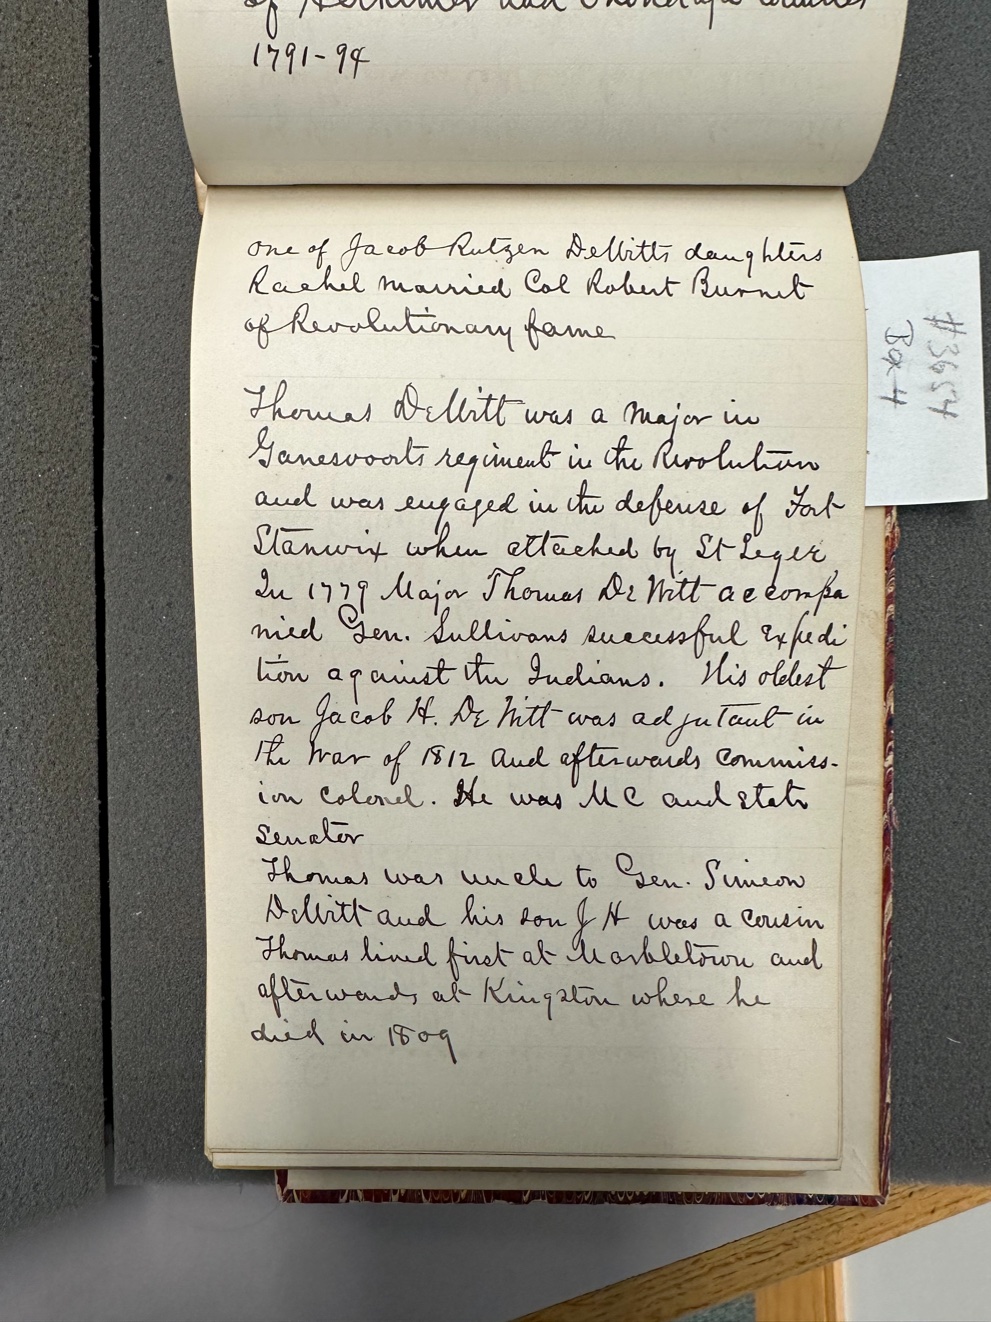 of Herkimer and Onondaga counties
1791-94
one of Jacob Rutzen DeWitts daughters
Rachel married Col Robert Burnet
of Revolutionary fame
Thomas DeWitt was a Major in
Gansevoorts regiment in the Revolution
and was engaged in the defense of Fort
Stanwix when attached by St Leger
In 1779 Major Thomas DeWitt accompa
nied Gen. Sullivans successful Expedi
tion against the Indians. His oldest
son Jacob H. DeWitt was adjutant in
the War of 1812 and afterwards commiss-
ion colonel. He was M C and state
senator
Thomas was uncle to Gen. Simeon
DeWitt and his son J H was a cousin
Thomas lived first at Marbletown and
afterwards at Kingston where he
died in 1809
#3654
Box 4